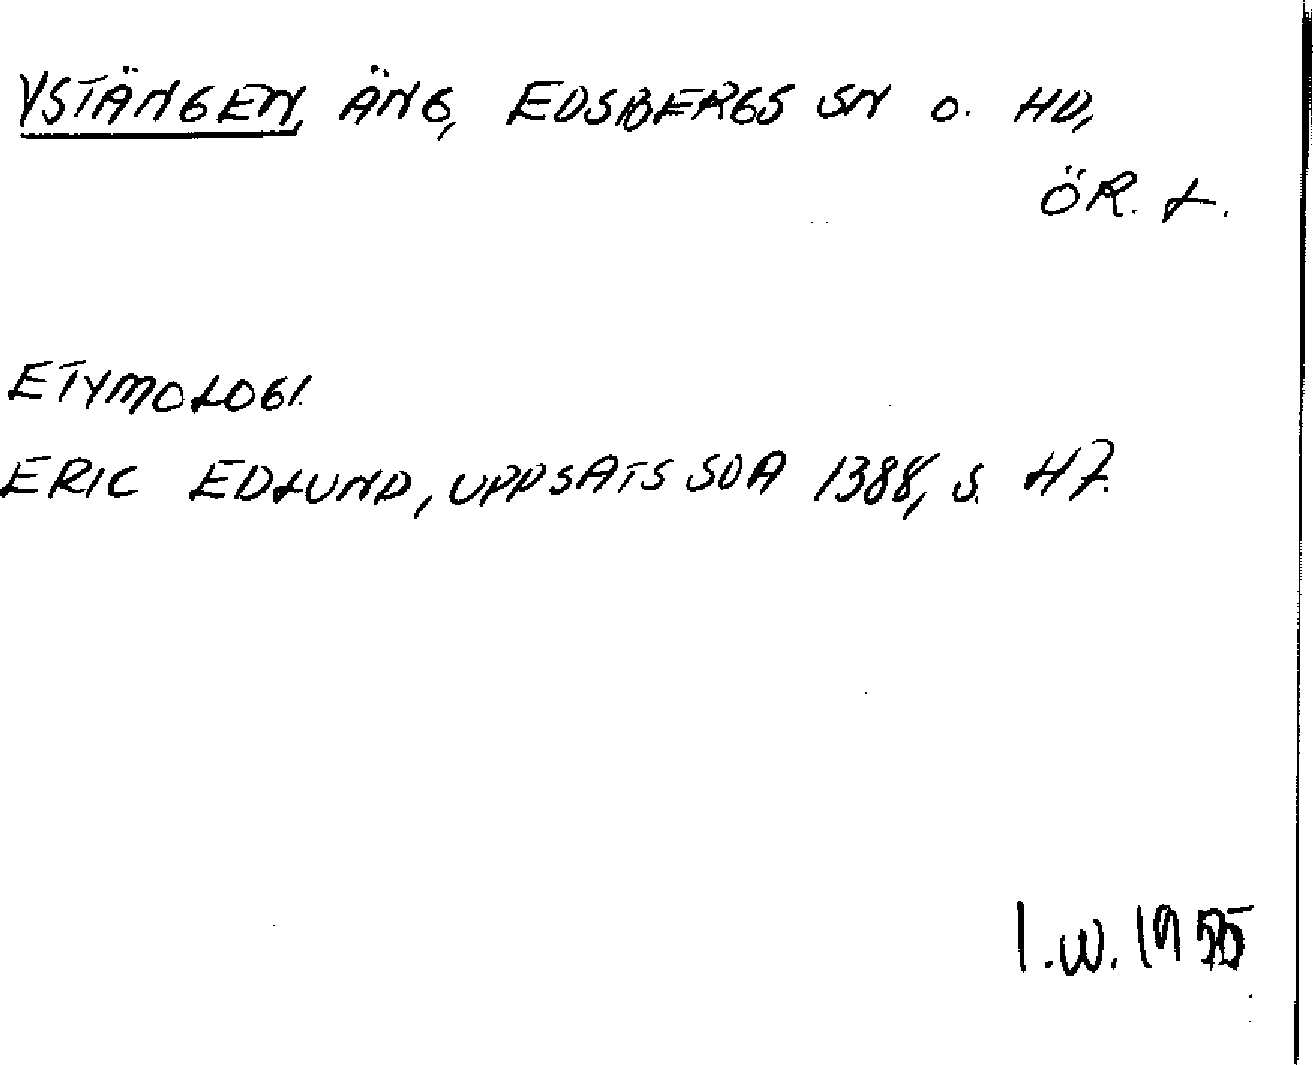 YSTÄNGEN, ÄNG, EDSBERGS SN O. HD,
ÖR. L.
ETYMOLOGI.
ERIC EDLUND, UPPSATS SOA 1388, S. 47.
I.W. 1955